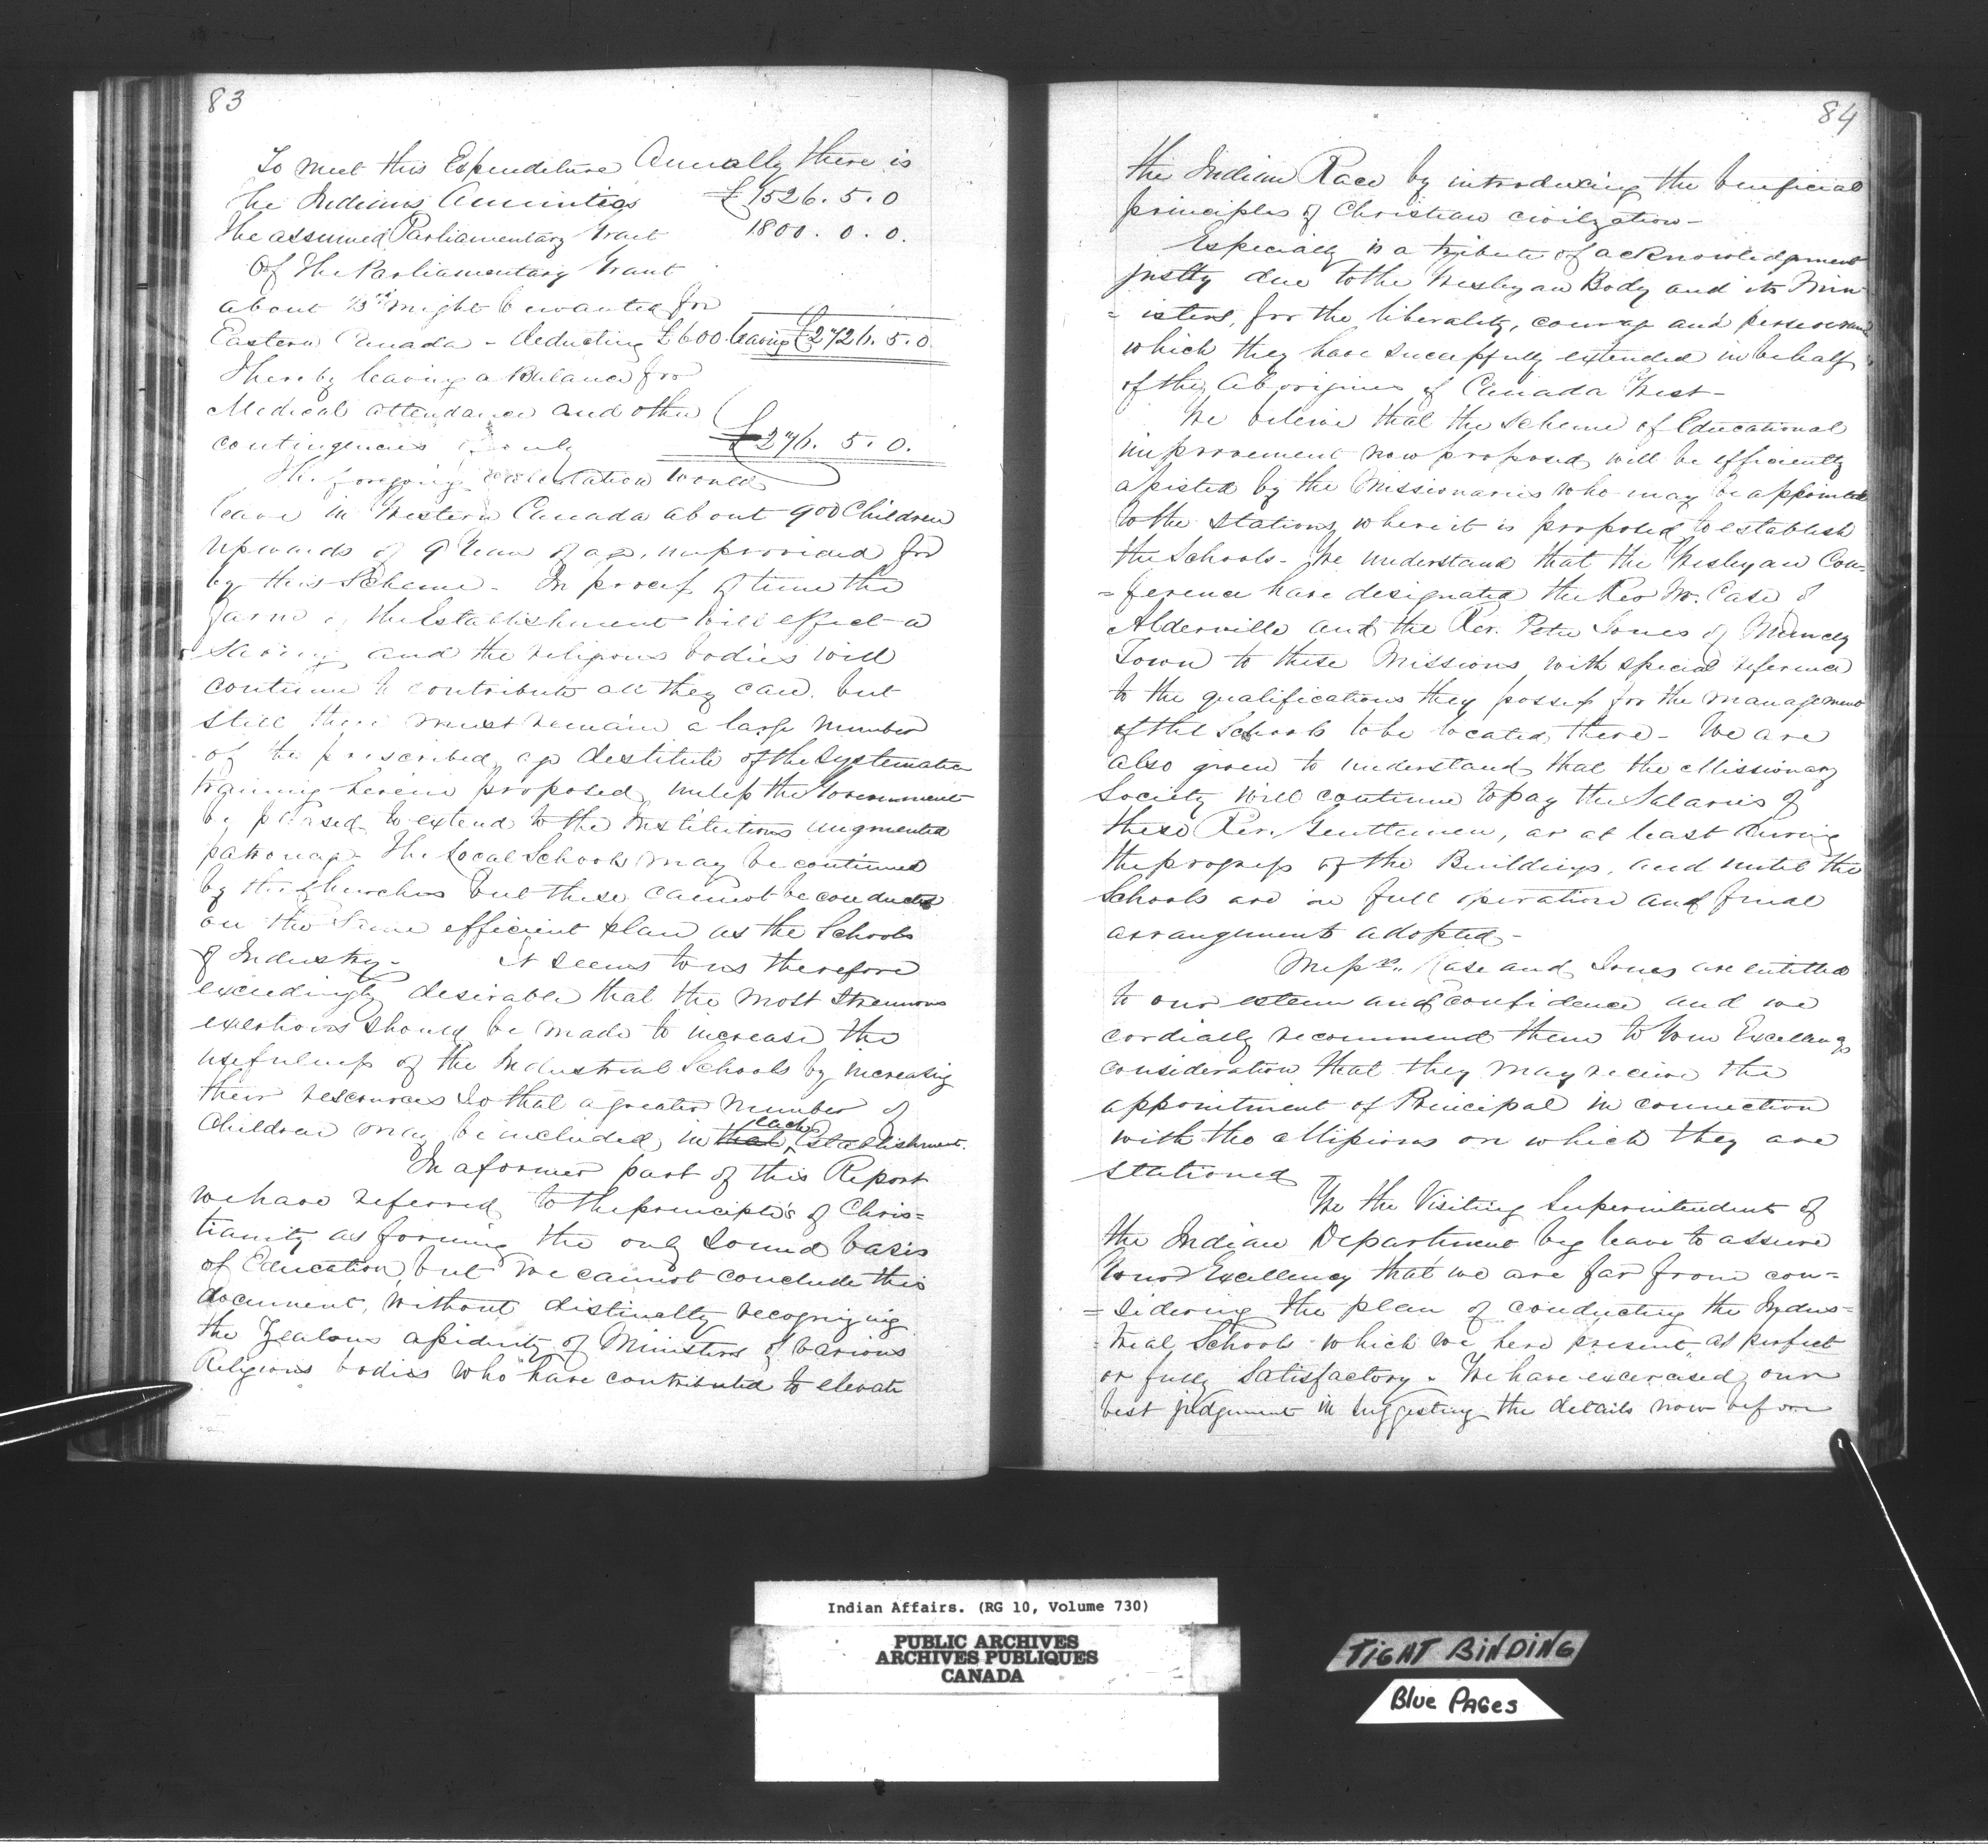 83
To meet this Expenditure Annually there is
The Indians Annuities £1526. 5. 0
The assumed Parliamentary Grant 1800. 0. 0.
Of the Parliamentary Grant
about 1/3rd might be wanted for
Eastern Canada - deducting £600 leaving £2726. 5. 0.
Thereby leaving a Balance for
Medical attendance and other
contingencies of only £276. 5. 0.
The foregoing calculation would
leave in Western Canada about 900 Children
upwards of 9 Years of age, unprovided for
by this Scheme - In process of time the
farm of the Establishment will effect a
saving and the religious bodies will
continue to contribute all they can, but
still there must remain a large number
of the prescribed age destitute of the systematic
training herein proposed, unless the Government
be pleased to extend to the Institutions augmented
patronage. The Local Schools may be continued
by the Churches but these cannot be conducted
on the same efficient plan as the Schools
of Industry - It seems to us therefore
exceedingly desirable that the most strenuous
exertions should be made to increase the
usefulness of the Industrial Schools by increasing
their resources so that a greater number of
Children may be included in that each Establishment.
In a former part of this Report
we have referred to the principles of Chris=
tianity as forming the only sound basis
of Education, but we cannot conclude this
document, without distinctly recognizing
the Zealous assiduity of Ministers of various
Religious bodies who have contributed to elevate
84
the Indian Race by introducing the beneficial
principles of Christian civilization -
Especially is a tribute of acknowledgement
justly due to the Wesleyan Body and its Min
= isters, for the liberality, courage and perseverance
which they have successfully extended in behalf
of the Aborigines of Canada West -
We believe that the scheme of Educational
improvement now proposed will be efficiently
assisted by the Missionaries who may be appointed
to the stations where it is proposed to establish
the Schools - We understand that the Wesleyan Con=
= ference have designated the Rev W. Case of
Alderville and the Rev. Peter Jones of Muncey
Town to these Missions with special reference
to the qualifications they possess for the management
of the Schools to be located there - We are
also given to understand that the Missionary
Society will continue to pay the Salaries of
these Rev. Gentlemen, or at least during
the progress of the Buildings, and until the
Schools are in full operation and final
arrangements adopted -
Messrs. Case and Jones are entitled
to our esteem and confidence and we
cordially recommend them to Your Excellencys
consideration that they may receive the
appointment of Principal in connection
with the Missions on which they are
stationed
We the Visiting Superintendents of
the Indian Department beg leave to assure
Your Excellency that we are far from con=
= sidering the plan of conducting the Indus=
= trial Schools which we here present, as perfect
or fully satisfactory. We have excercised our
best judgement in suggesting the details now before
Indian Affairs. (RG 10, Volume 730)
PUBLIC ARCHIVES
ARCHIVES PUBLIQUES
CANADA
TIGHT BINDING
Blue PAGes